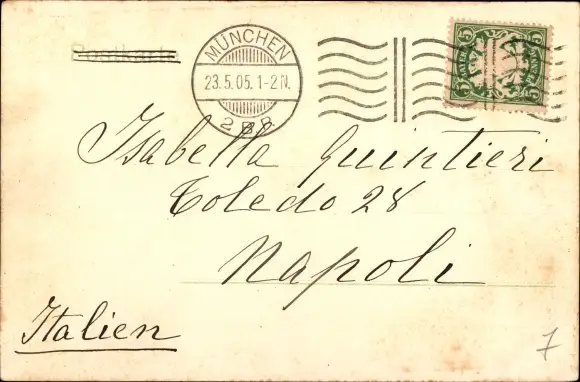 Postkarte
MÜNCHEN
23.5.05. 1-2 N.
2 B.P.
5 5
Isabella Quintieri
Toledo 28
Napoli
Italien
7